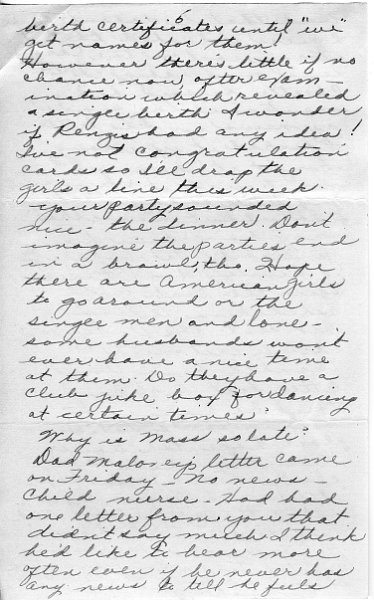 6
berth certificates until "we"
get names for them!
However there's little if no
chance now after exam-
ination which revealed
a single berth. I wonder
if Renzis had any idea!
I've not congratulation
cards so I'll drop the
girls a line this week.
- your party sounded
nice - the dinner. Don't
imagine the parties end
in a brawl, tho. Hope
there are American girls
to go around or the
single men and lone-
some husbands won't
ever have a nice time
at them. Do they have a
club juke box for dancing
at certain times?
Why is Mass so late?
Dad Maloney's letter came
on Friday - No news -
Child nurse - Had had
one letter from you that
didn't say much. I think
he'd like to hear more
often even if he never has
any news to tell he feels